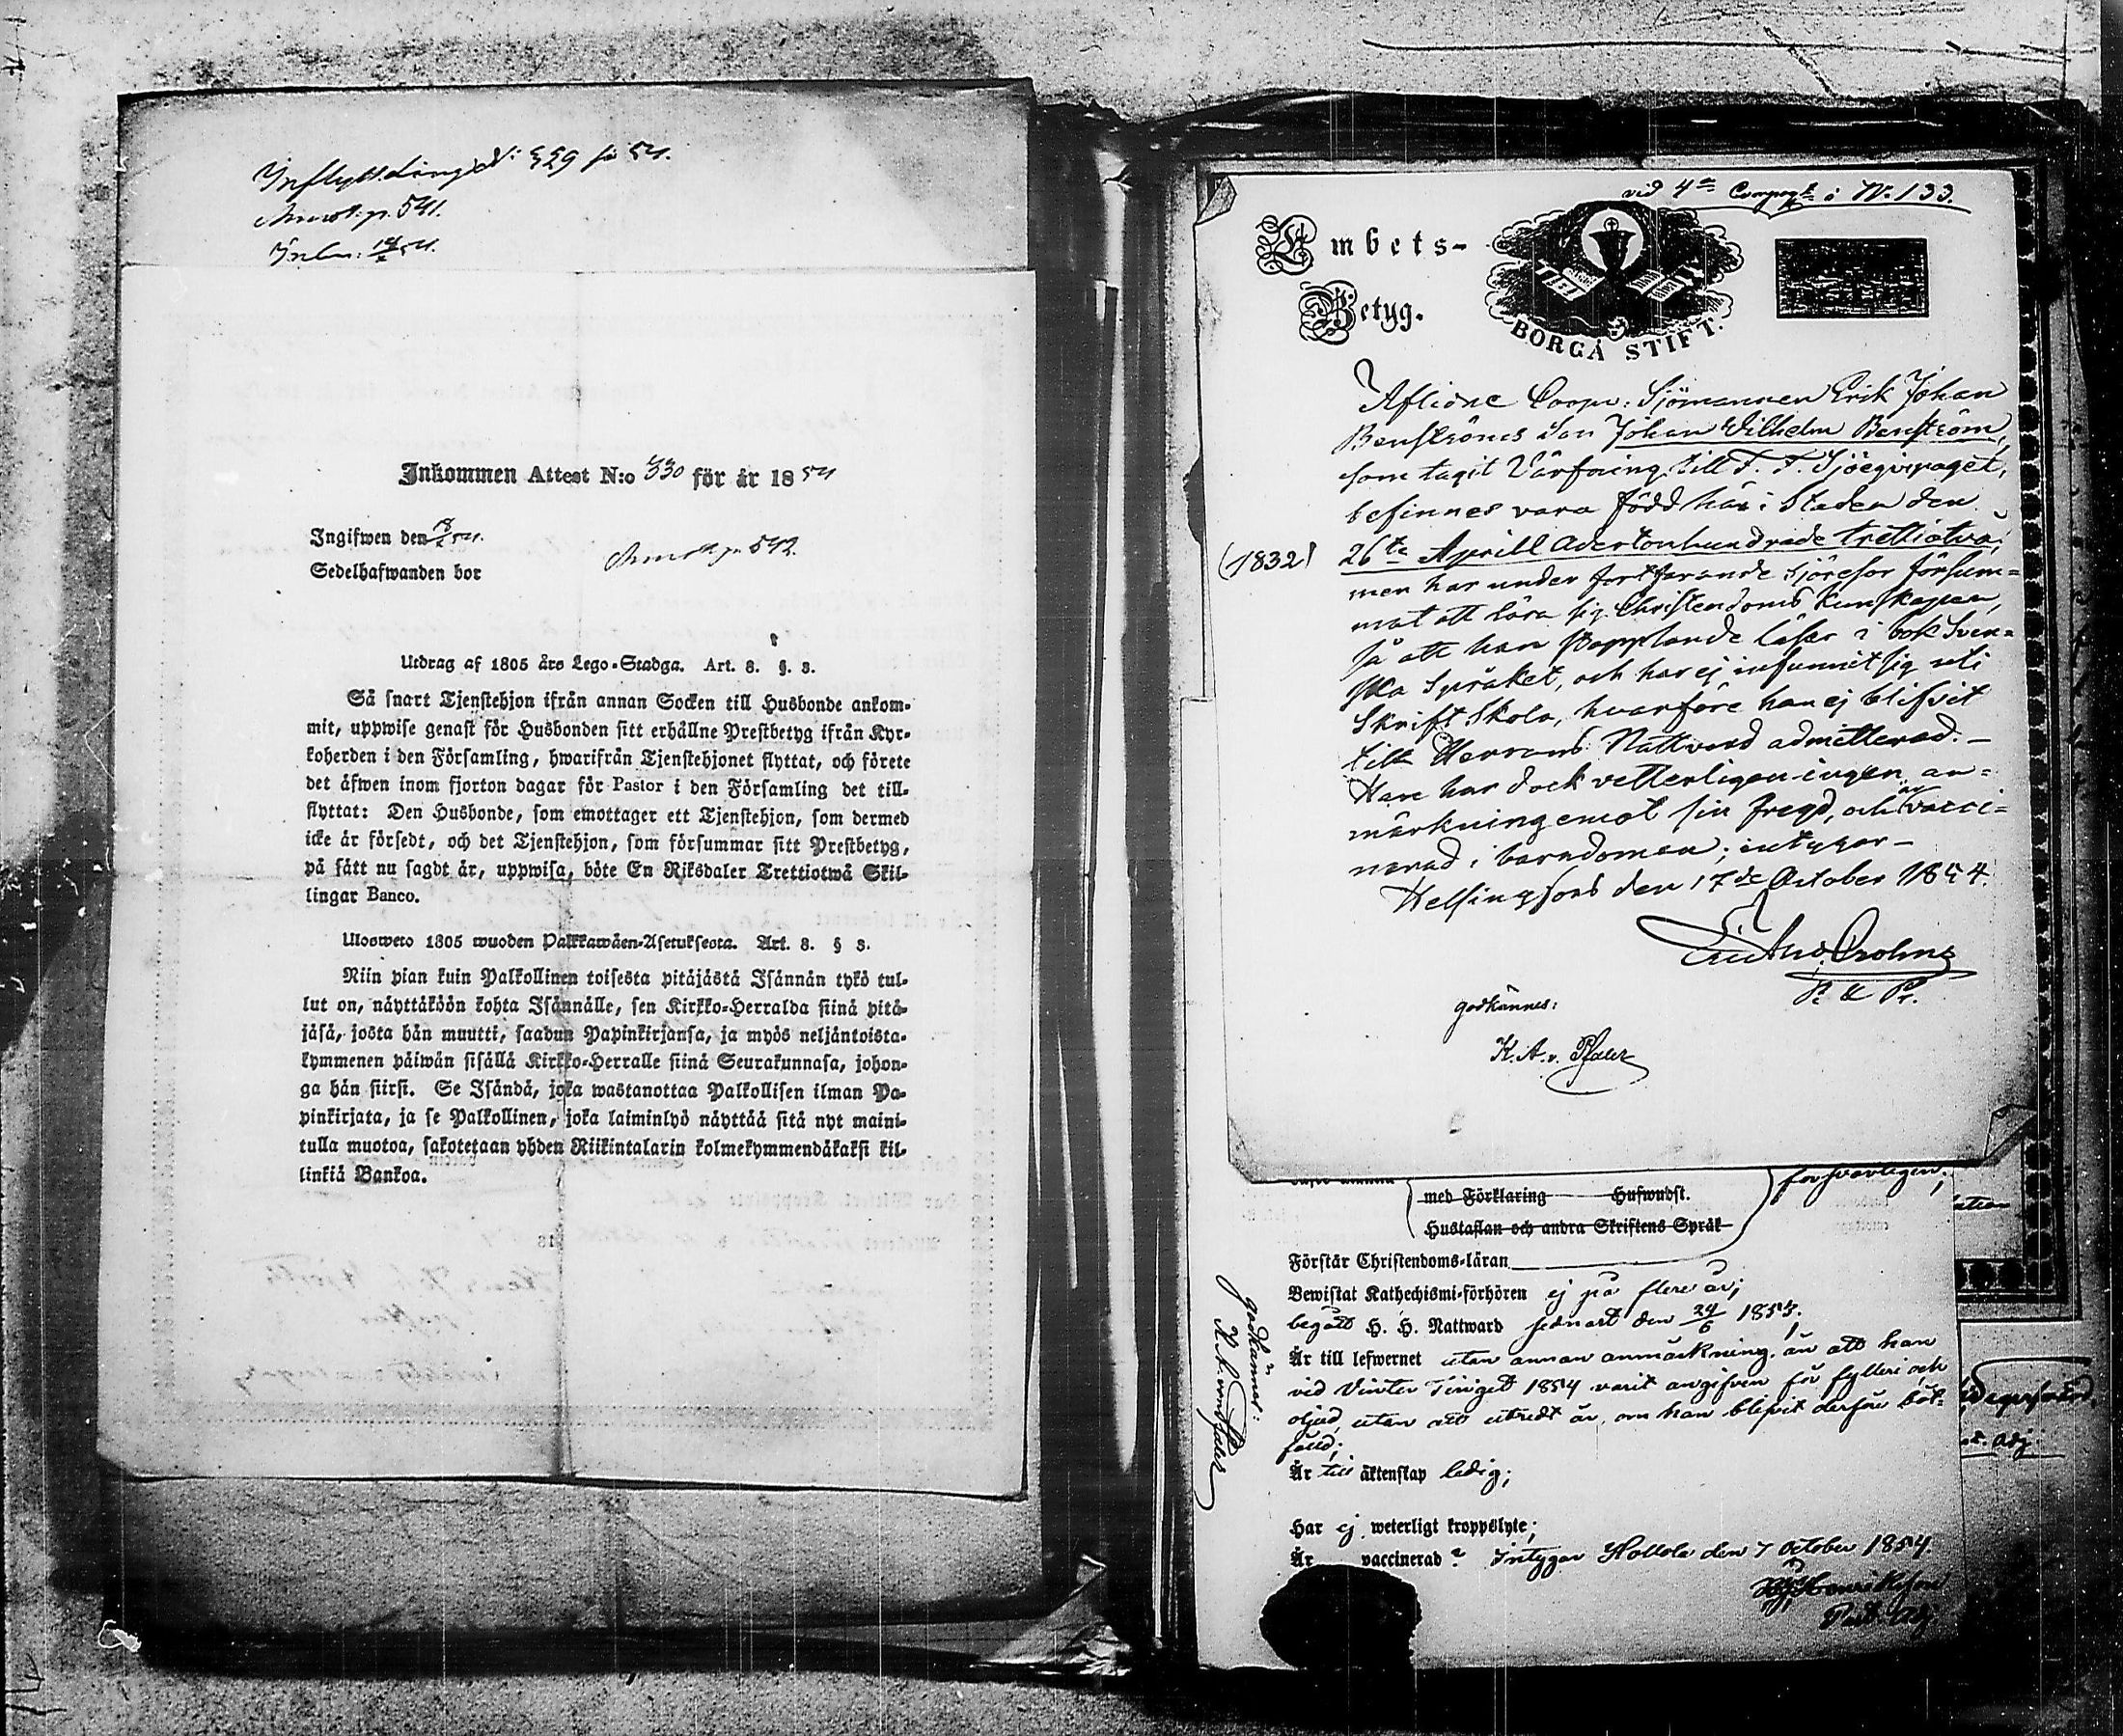 Inflyttn.längd N: 529 för 54.
p. 541.
Inkommen Attest N:o 530 för år 1854
Ingifwen den
p. 542.
Sedelhafwanden bor
Utdrag af 1805 års Lego-Stadga. Art. 8. §. 3.
Så snart Tjenstehjon ifrån annan Socken till Husbonde ankom-
mit, uppwise genast för Husbonden sitt erhållne Prestbetyg ifrån Kyr-
koherden i den Församling, hwarifrån Tjenstehjonet flyttat, och förete
det äfwen inom fjorton dagar för Pastor i den Församling det till-
flyttat: Den Husbonde, som emottager ett Tjenstehjon, som dermed
icke är försedt, och det Tjenstehjon, som försummar sitt Prestbetyg,
på sätt nu sagdt är, uppwisa, böte En Riksdaler Trettiotwå Skil-
lingar Banco.
Ulosweto 1805 wuoden Palkkawäen-Asetuksesta. Art. 8. § 3.
Niin pian kuin Palkollinen toisesta pitäjästä Isännän tykö tul-
lut on, näyttäköön kohta Isännälle, sen Kirkko-Herralda siinä pitä-
jäsä, josta hän muutti, saadun Papinkirjansa, ja myös neljäntoista-
kymmenen päiwän sisällä Kirkko-Herralle siinä Seurakunnasa, johon-
ga hän siirsi. Se Isändä, joka wastanottaa Palkollisen ilman Pa-
pinkirjata, ja se Palkollinen, joka laiminlyö näyttää sitä nyt maini-
tulla muotoa, sakotetaan yhden Riikintalarin kolmekymmendäkaksi kil-
linkiä Bankoa.
vid 4de Compgt: i No 133.
Embets-
Betyg.
BORGÅ STIFT.
Aflidne Sjömannen Erik Johan
Benströms Son Johan Wilhelm Benström,
som tagit Värfning till F. F. Sjöeqvipaget,
befinnes vara född här i Staden den
(1832) 26te Aprill Adertonhundrade trettiotvå;
men har under fortfarande Sjöresor försum-
mat att lära sig Christendoms Kunskapen,
så att han stapplande läser i bok Sven-
ska Språket, och har ej infunnit sig uti
Skrift Skola, hvarföre han ej blifvit
till Herrans Nattvard admitterad. —
Han har dock vetterligen ingen an-
märkning emot sin fregd, och är vacci-
nerad i barndomen; intygar —
Helsingfors den 17de October 1854.
P. & Pr.
godkännes:
K. A. v. Pfaler
med Förklaring Husw:dst.
försvarligen;
Hustaflan och andra Skriftens Språk
Förstår Christendoms-läran
Bewistat Kathechismi-förhören ej på flere år;
begått H. H. Nattward sednast den 24/6 1854.
Är till lefwernet utan annan anmärkning, än att han
vid Vinter Tinget 1854 varit angifven för fylleri och
oljud, utan att utredt är, om han blifvit derföre böt-
fälld;
Är till äktenskap ledig;
Har ej weterligt kroppslyte;
Är vaccinerad? Intygar Hollola den 7 October 1854.
Henriksson
Past. Adj.
godkännes:
K. A. von Pfaler
Adj